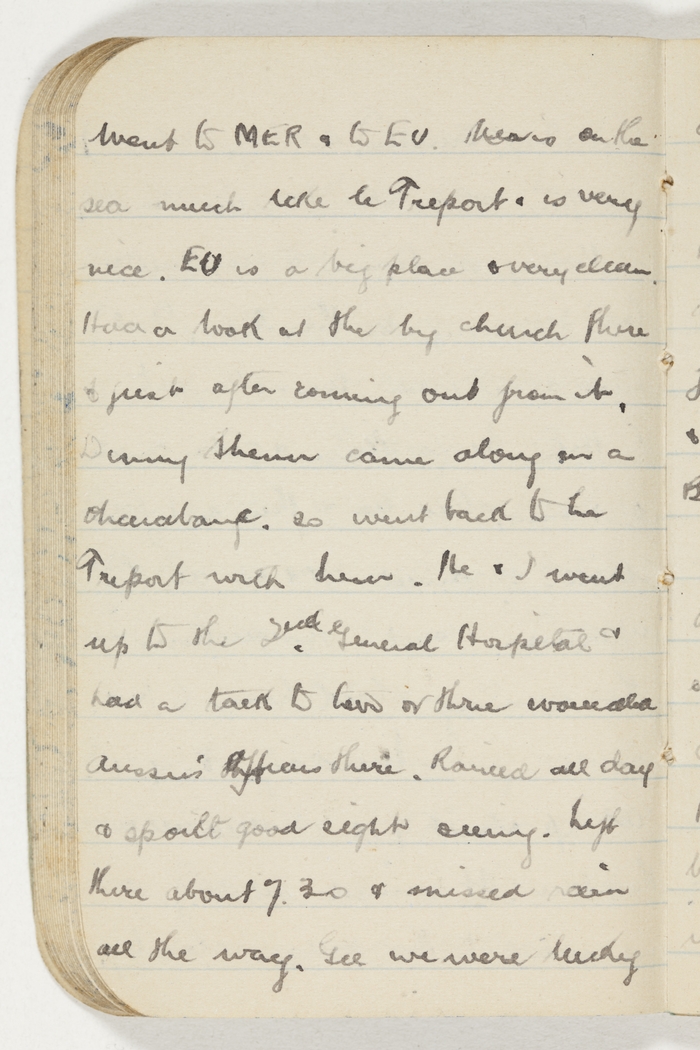 Went to MER & to EU. Mer is on the
sea much like le Treport & is very
nice. EU is a big place & very clean.
Had a look at the big church there
& just after coming out from it,
Dinny came along in a
charabanc. so went back to le
Treport with him. He & I went
up to the 2nd General Hospital &
had a talk to two or three wounded
Aussie Officers there. Rained all day
& spoilt good sight seeing. Left
there about 7.30 & missed rain
all the way. Gee we were lucky